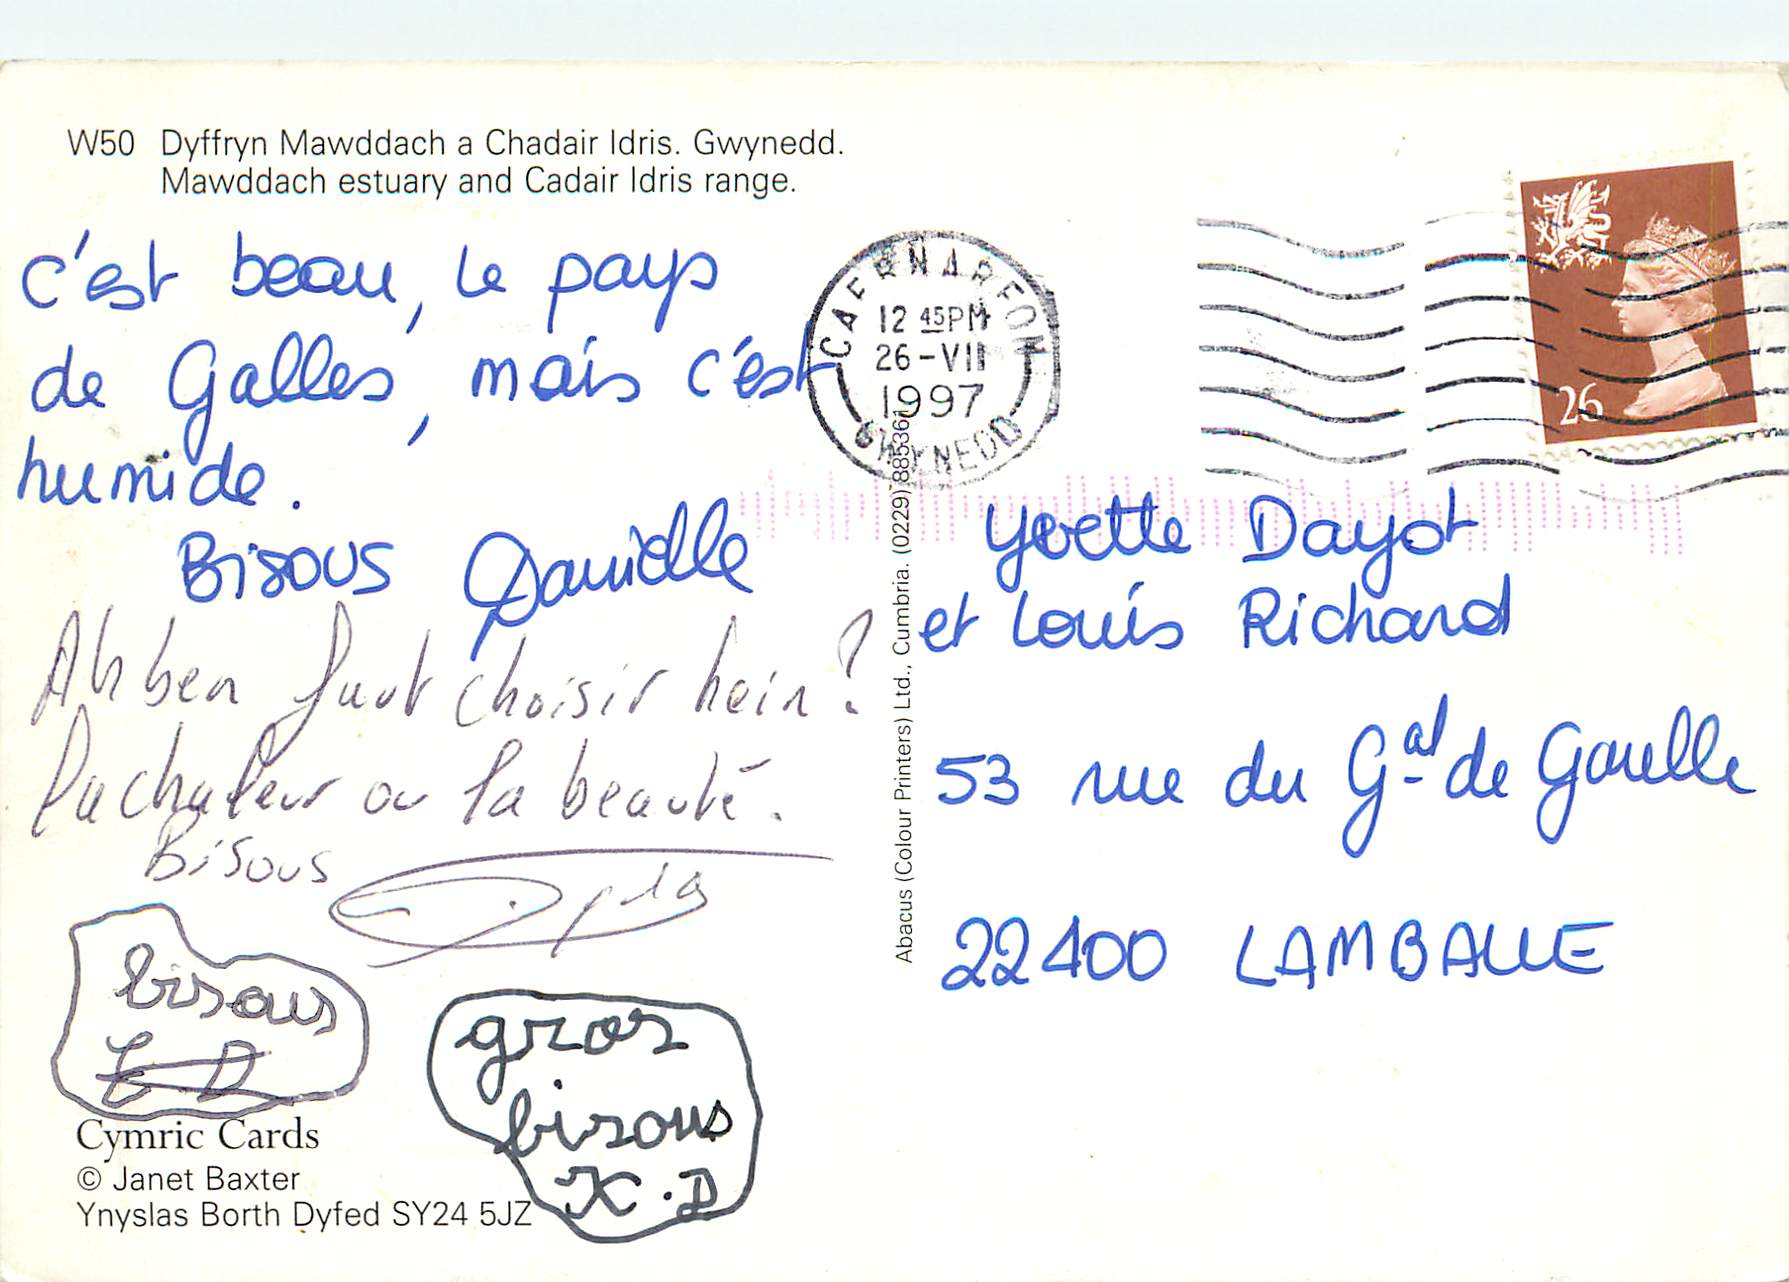 W50 Dyffryn Mawddach a Chadair Idris. Gwynedd.
Mawddach estuary and Cadair Idris range.
c'est beau, le pays
de Galles, mais c'est
humide.
Bisous Danielle
Ah ben faut choisir hein?
La chaleur ou la beauté.
Bisous
bisous
gros
bisous
K.D
Cymric Cards
© Janet Baxter
Ynyslas Borth Dyfed SY24 5JZ
Abacus (Colour Printers) Ltd., Cumbria. (0229) 885361
CAERNARFON
12 45PM
26-VII
1997
GWYNEDD
26
Yvette Dayot
et Louis Richard
53 rue du Gal de Gaulle
22400 LAMBALLE